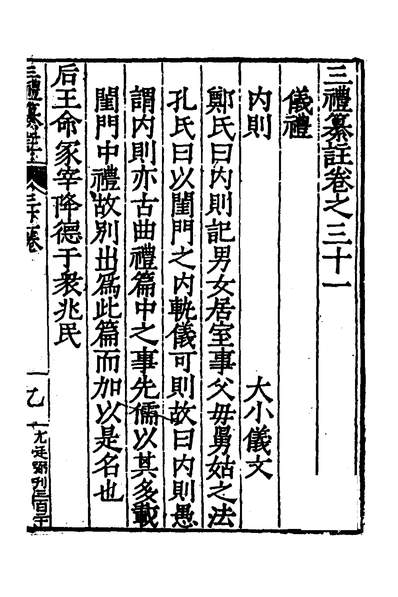 三禮纂註卷之三十一
儀禮
內則 大小儀文
鄭氏曰內則記男女居室事父毋舅姑之法
孔氏曰以閨門之內軌儀可則故曰內則愚
謂內則亦古曲禮篇中之事先儒以其多載
閨門中禮故別出爲此篇而加以是名也
后王命冢宰降德于衆兆民
三禮纂註 卷 乙